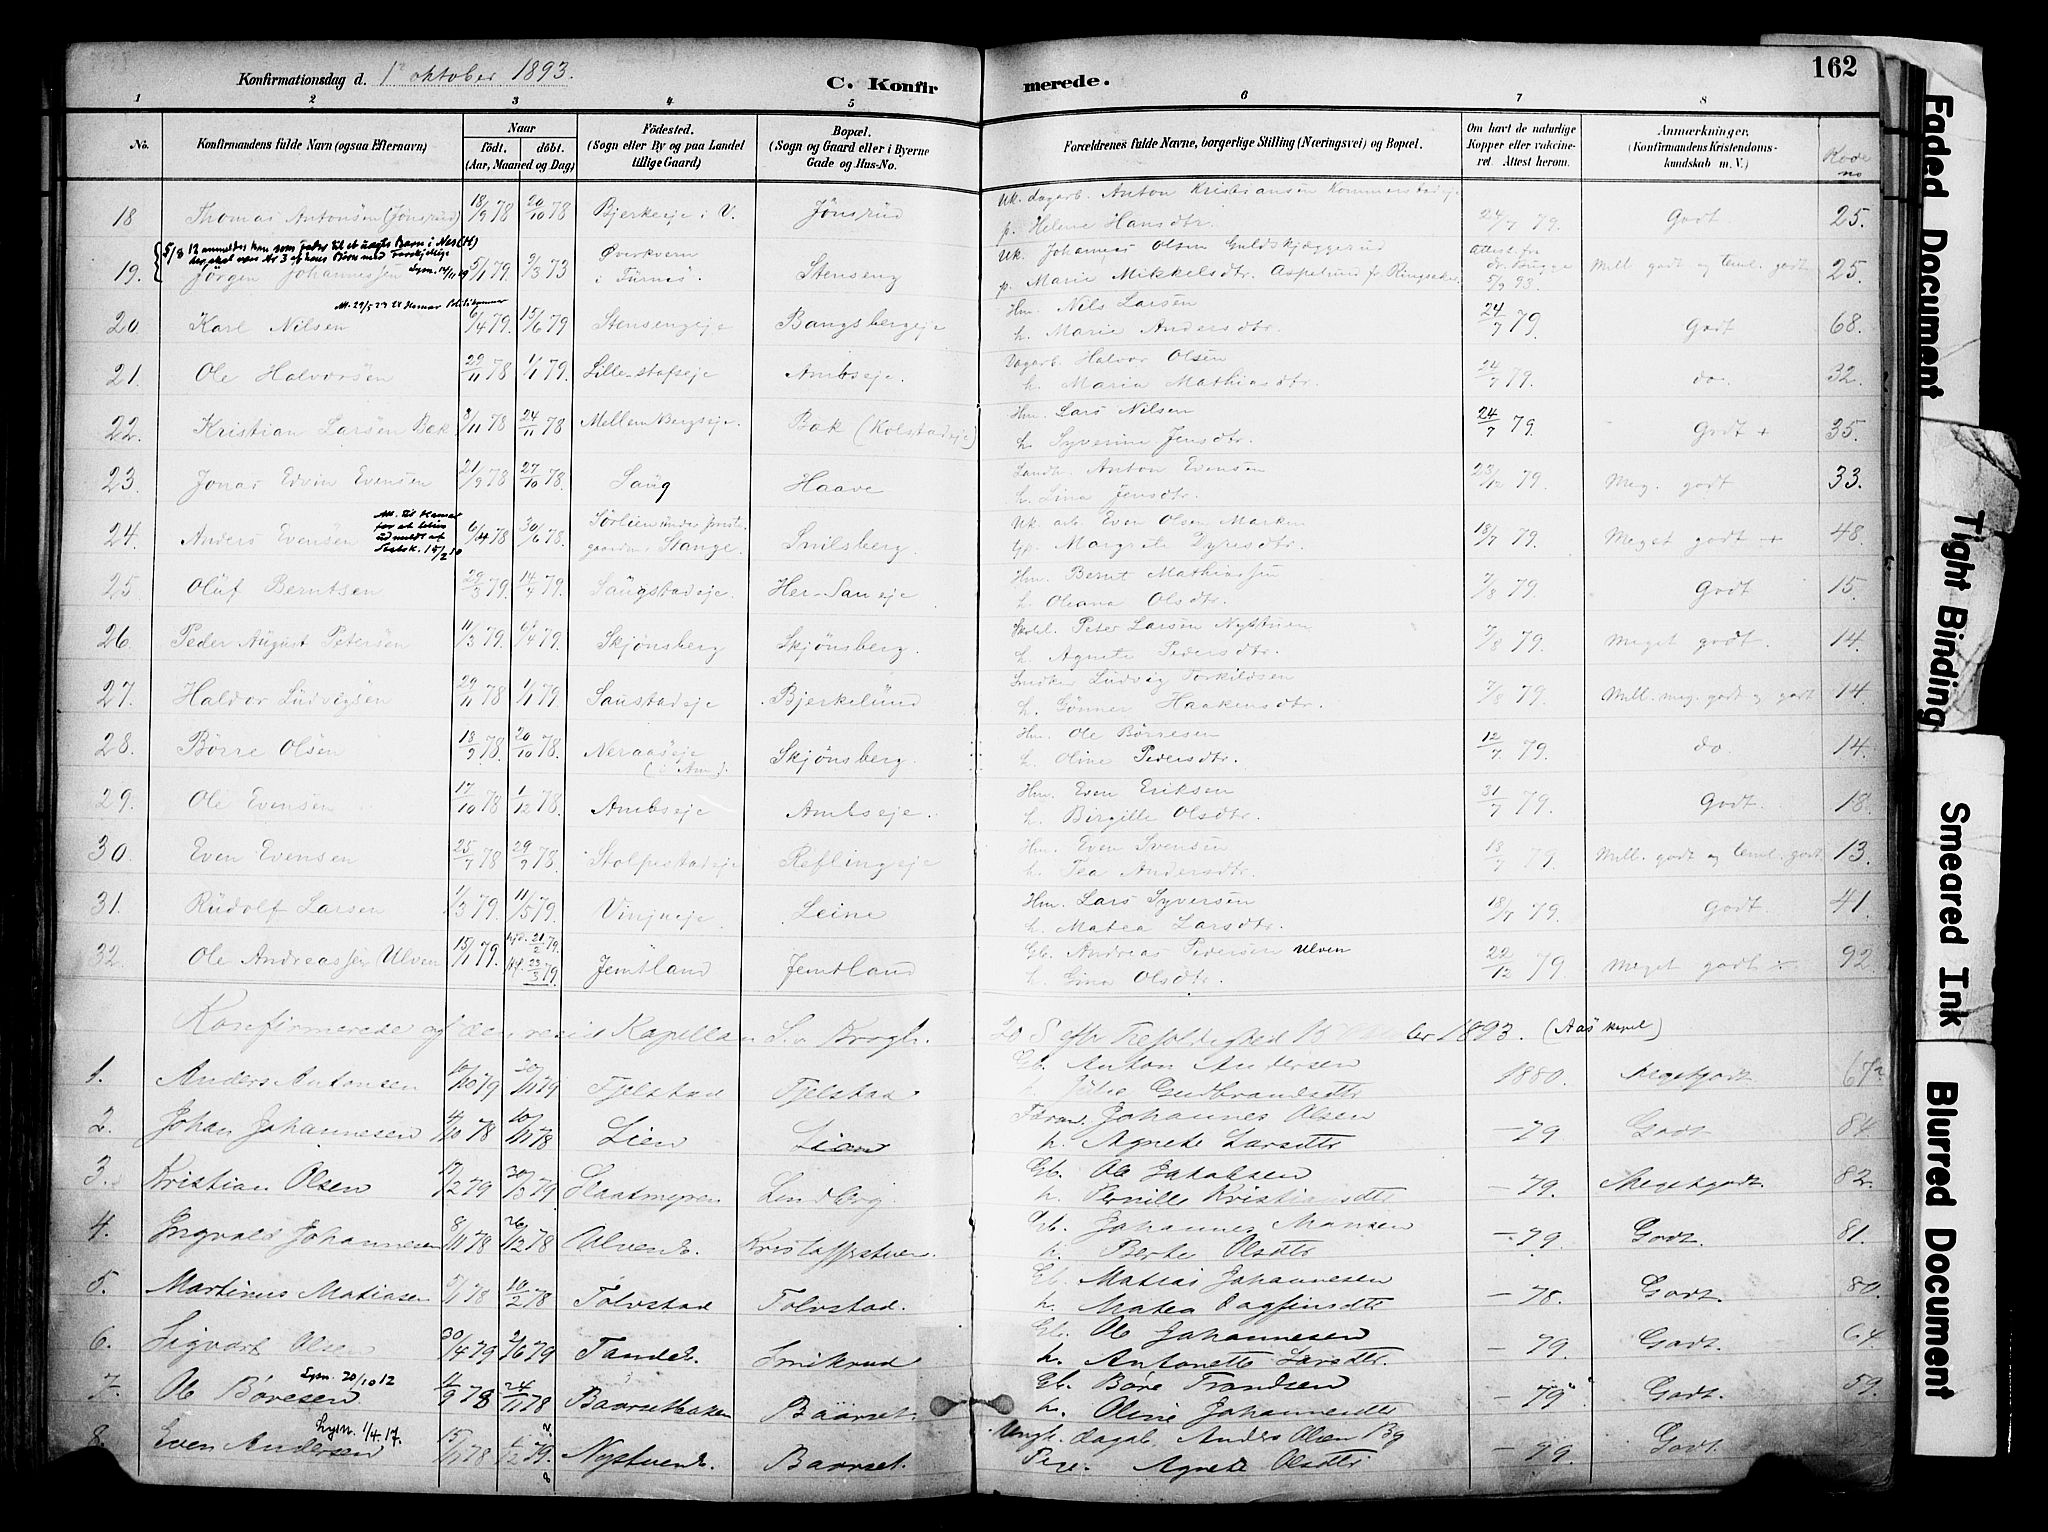 162
Konfirmationsdag d. 1 oktober 1893.
C. Konfirmerede.
1 2 3 4 5 6 7 8
No.
Konfirmandens fulde Navn (ogsaa Efternavn)
Naar
födt, döbt.
(Aar, Maaned og Dag)
Födested.
(Sogn eller By og paa Landet tillige Gaard)
Bopæl.
(Sogn og Gaard eller i Byerne Gade og Hus-No.
Forældrenes fulde Navne, borgerlige Stilling (Næringsvei) og Bopæl.
Om havt de naturlige Kopper eller vakcineret. Attest herom.
Anmærkninger.
(Konfirmandens Kristendomskundskab m. V.)
Kode no
18 Thomas Antonsen (Jönsrud) 18/9 78 20/10 78 Bjerkeeje i V. Jönsrud Uk. dagarb. Anton Kristiansen
p. Helene Hansdtr. 24/7 79. Godt 25.
19. Jörgen Johannessen 5/1 79 Øverkvern i Furnes Stenseng Uk. Johannes Olsen Guldskjæggerud
p. Marie Mikkelsdtr. 5/9 93. Mill. godt og teml. godt 25.
20. Karl Nilsen 6/4 79. 15/6 79 Stensengeje Bangsbergeje Hm. Nils Larsen
h. Marie Andersdtr. 24/7 79. Godt 68.
21. Ole Halvorsen 29/11 78 1/1 79. Lille-stafseje Ambseje. Dagarb. Halvor Olsen
h. Maria Mathiasdtr. 24/7 79. do. 32.
22. Kristian Larsen Bæk 3/11 78 24/11 78 Mellem Bergseje. Bæk (Kolstadeje) Hm. Lars Nilsen
h. Syverine Jensdtr. 24/7 79. Godt + 35.
23. Jonas Edvin Evensen 21/9 78 27/10 78. Saug Haave Landh. Anton Evensen
h. Lina Jensdtr. 23/12 79 Meg. godt 33.
24. Anders Evensen 6/4 78 30/6 78. Stange. Snilsberg. Uk. arb. Even Olsen
Gp. Margrete Dyresdtr. 18/7 79. Meget godt + 48.
25 Oluf Berntsen 29/3 79. 14/4 79. Saugstadeje. Her-Saueje Hm. Bernt Mathiassen
h. Oleana Olsdtr. 7/8 79. Godt 15.
26 Peder August Petersen 11/3 79. 79. Skjönsberg Skjönsberg. Skohl. Peter Larsen Nystuen
h. Agnete Pedersdtr. 7/8 79 Meget godt. 14.
27. Haldor Ludvigsen 29/11 78 1/1 79. Saustadeje Bjerkelund Snedker Ludvig Torkildsen
h. Gönner Haakensdtr. 7/8 79 Mill. meg. godt og godt 14
28. Börre Olsen 13/9 78 20/10 78. Neraaseje Skjönsberg. Hm. Ole Börresen
h. Oline Pedersdtr. 12/7 79. do. 14.
29. Ole Evensen 17/10 78 1/12 78. Ambseje Ambseje. Hm. Even Eriksen
h. Birgitte Olsdtr. 31/7 79. Godt. 18.
30. Even Evensen 25/7 78 29/9 78. Stolpestadeje Reflingeje Hm. Even Svensen
h. Tea Andersdtr. 18/7 79. Mill. godt og teml. godt 13.
31. Rudolf Larsen 1/3 79. 11/5 79. Vinjueje Leine Hm. Lars Syversen
h. Matea Larsdtr. 18/7 79. Godt. 41.
32. Ole Andreassen Ulven 15/1 79. 21/2 79. 23/3 79. Jemtland Jemtland Gb. Andreas Pedersen Ulven
h. Gina Olsdtr. 22/12 79 Meget godt 92.
Konfirmerede af den res. Kapellan Krogh. 20 S. efter Trefoldighed 1893. (Aas kapel)
1. Anders Antonsen 79 79 Fjelstad Fjelstad Gb. Anton Andersen
h. Julie Gudbrandsdtr 1880. Megetgodt 67
2. Johan Johannesen 78 10/11 78 Lien Lien Johannes Olsen
h. Agnete Larsdtr - 79 Godt 84.
3. Kristian Olsen 79 79 Slaatmyren Lundberg Gb. Ole Jakobsen
h. Pernille Kristiansdtr - 79. Megetgodt. 82.
4. Ingvald Johannesen 8/11 78 26/12 78 Kristoffestuen. Gb. Johannes Mansen
h. Berte Olsdtr - 79. Godt. 81.
5. Martinus Matiasen 78 10/2 78 Tolvstad Tolvstad. Gb. Matias Johannesen
h. Matea Dagfinsdtr - 78. Godt. 80.
6. Sigvart Olsen 30/4 79 2/6 79 Smikrud Gb. Ole Johannesen
h. Antonette Larsdtr. - 79. Godt. 64.
7. Ole Böresen Lysn. 20/10 12 78 24/11 78 Baarsetbaken Baarset. Gb. Böre Trondsen
h. Oline Johannesdtr - 79 Godt. 59.
8. Even Andersen Lysn. 1/4.17. 78 79. Baarset. Ungk. dagab. Anders Olsen
Pige. Agnete Olsdtr - 79. Godt.
Faded Document
Tight Binding
Smeared Ink
Blurred Document